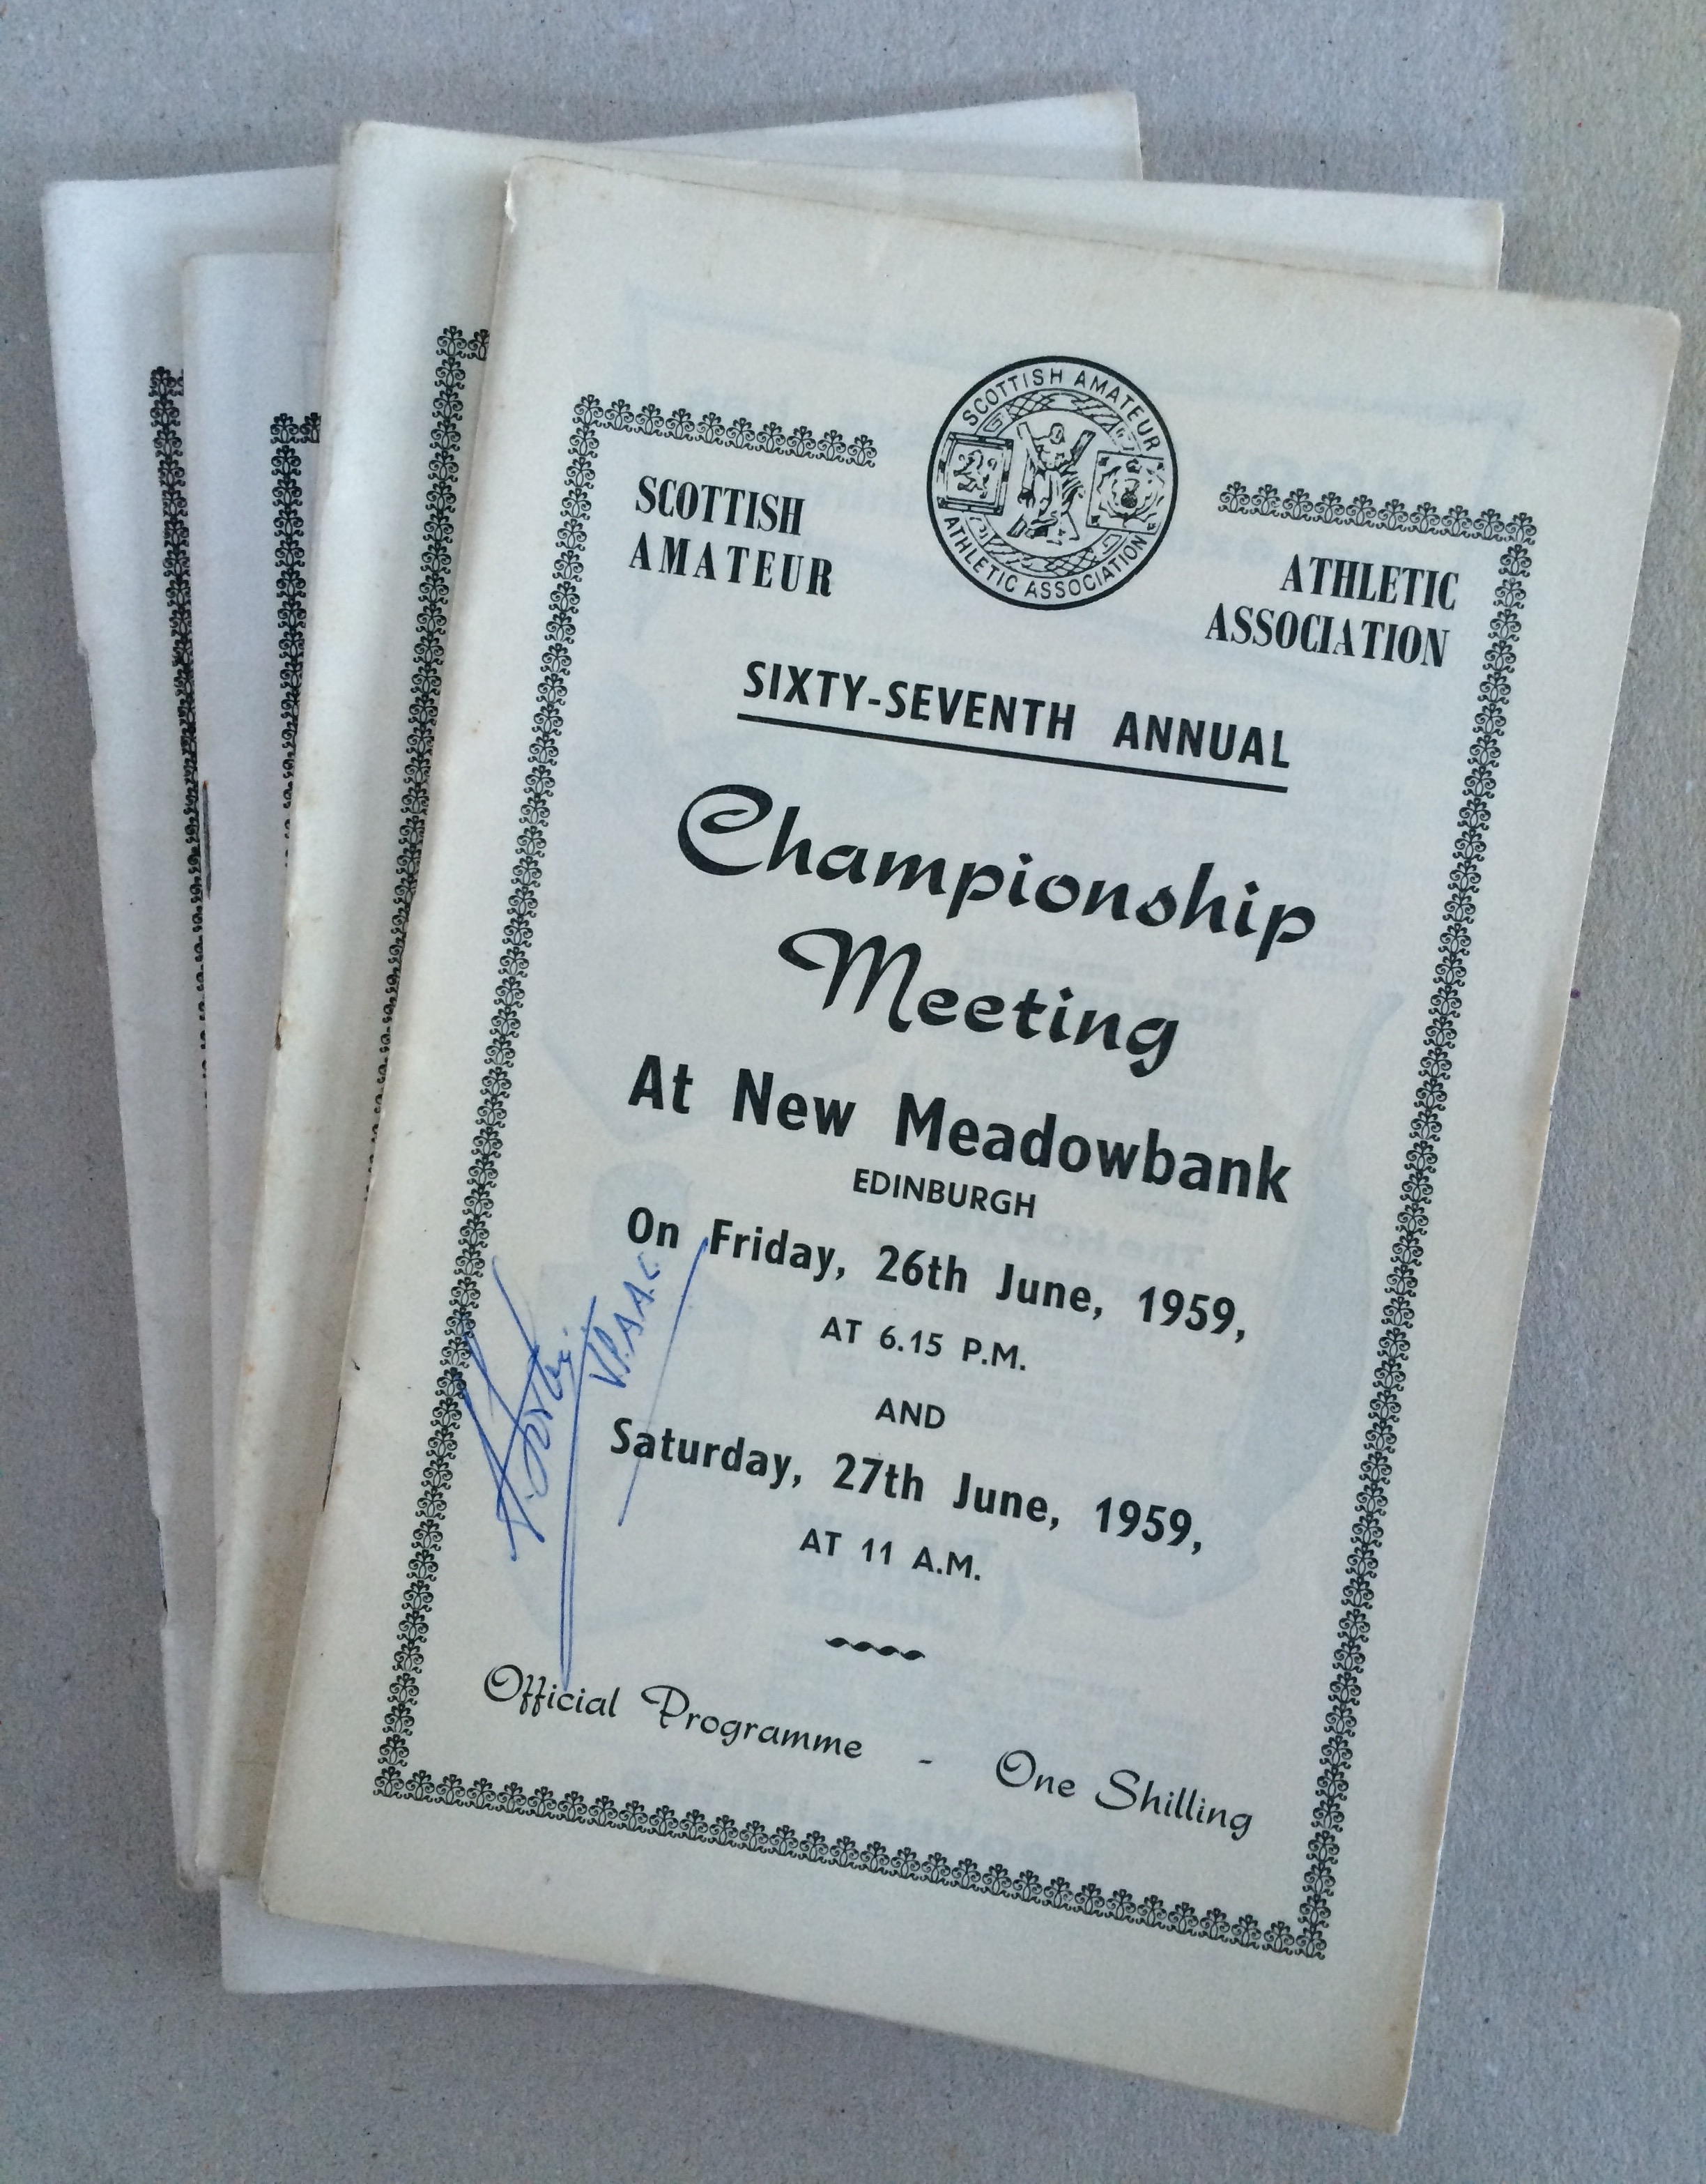 SCOTTISH AMATEUR
ATHLETIC ASSOCIATION
SCOTTISH
AMATEUR
ATHLETIC
ASSOCIATION
SIXTY-SEVENTH ANNUAL
Championship
Meeting
At New Meadowbank
EDINBURGH
On Friday, 26th June, 1959,
AT 6.15 P.M.
AND
Saturday, 27th June, 1959,
AT 11 A.M.
V.P.A.A.C.
Official Programme - One Shilling